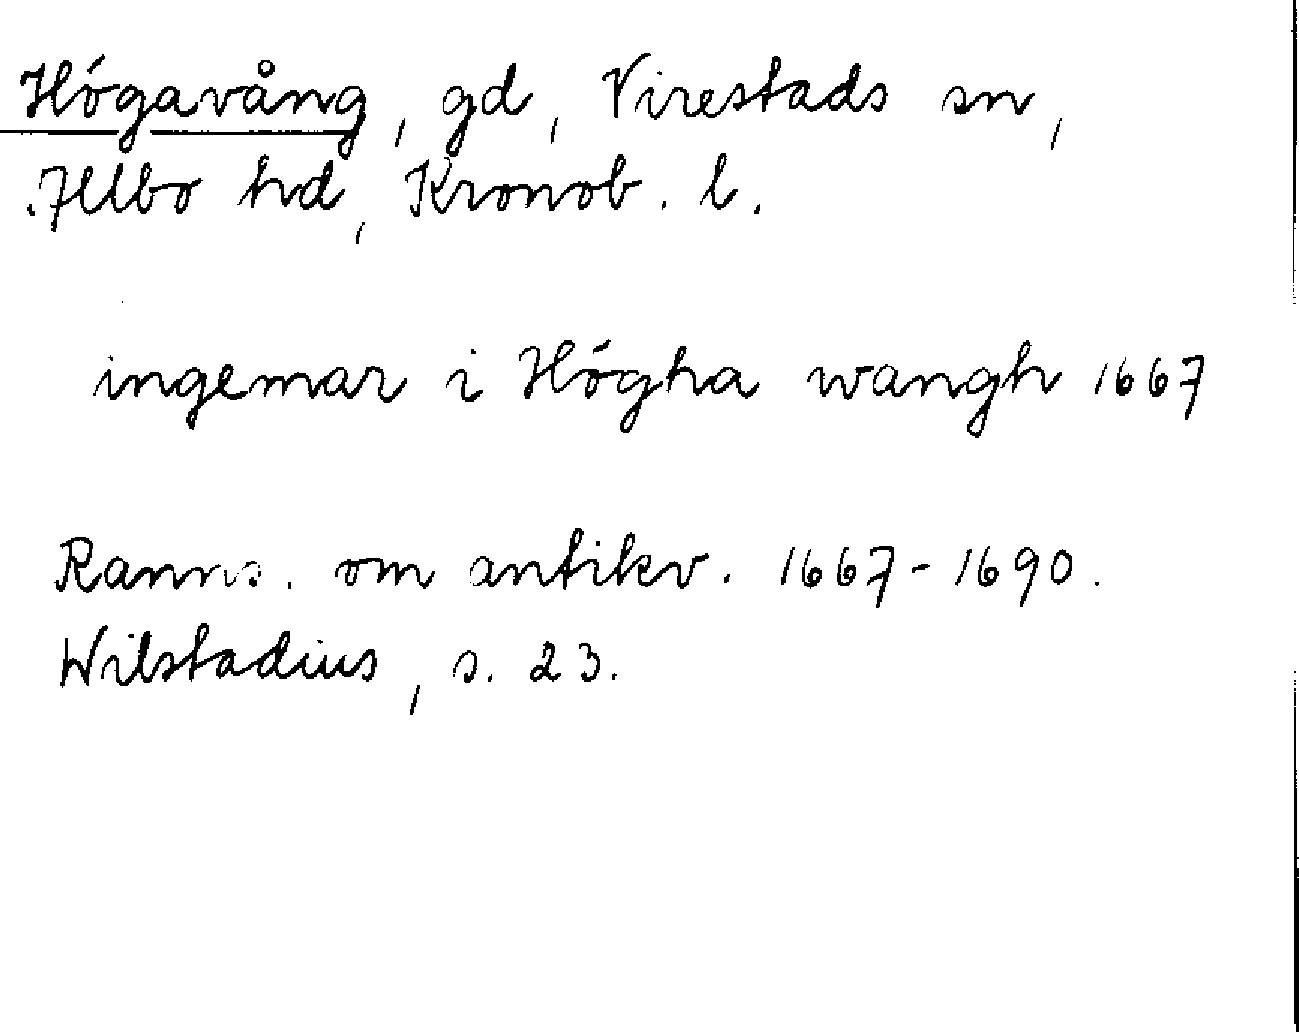 Högavång, gd, Virestads sn,
Allbo hd, Kronob. l.
ingemar i Högha wangh 1667
Ranns. om antikv. 1667-1690.
Wilstadius, s. 23.